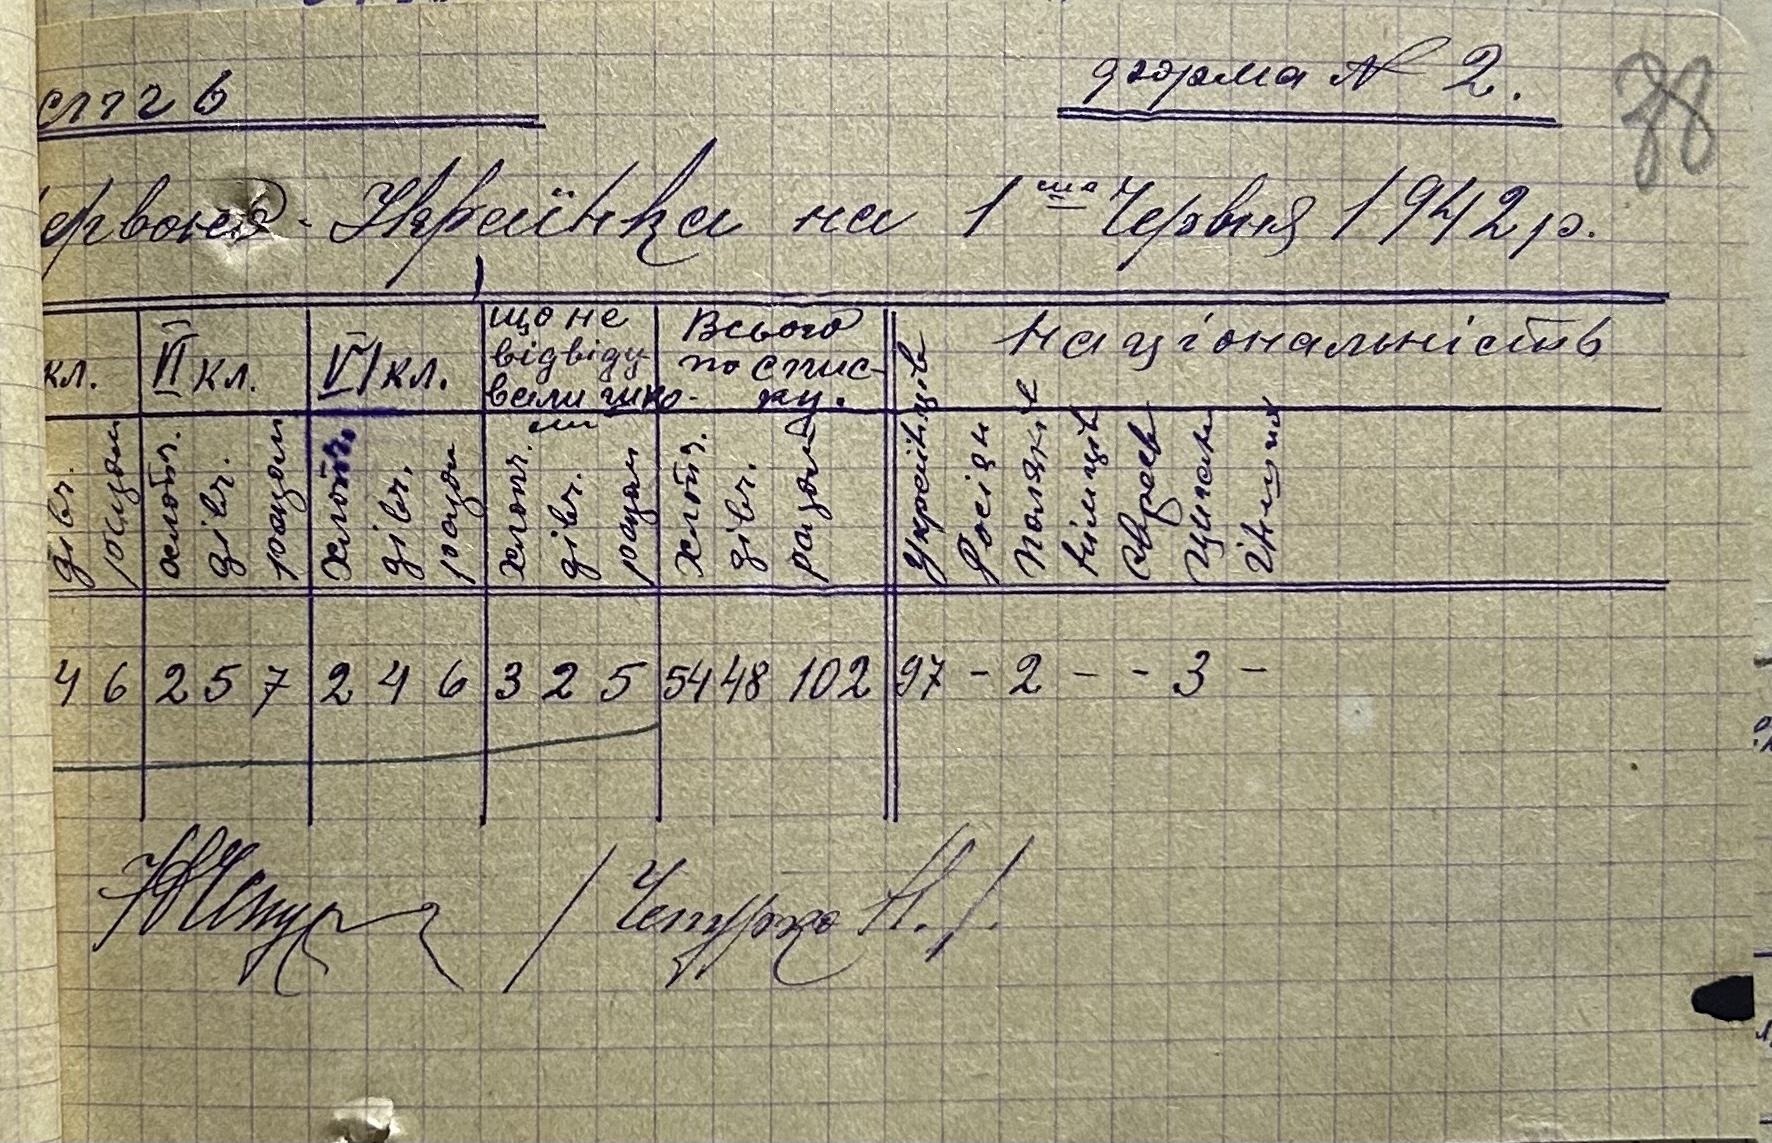 форма № 2.
38
Червона-Українка на 1ша Червня 1942 р.
кл. VІ кл. VІ кл. що не відвідували школи Всього по списку. Національність
дівч. разом хлопч. дівч. разом хлопч. дівч. разом хлопч. дівч. разом хлопч. дівч. разом Українців Росіян Поляків Німців Євреїв Циган Інших
4 6 2 5 7 2 4 6 3 2 5 54 48 102 97 - 2 - - 3 -
/ Чепурко Н. /.